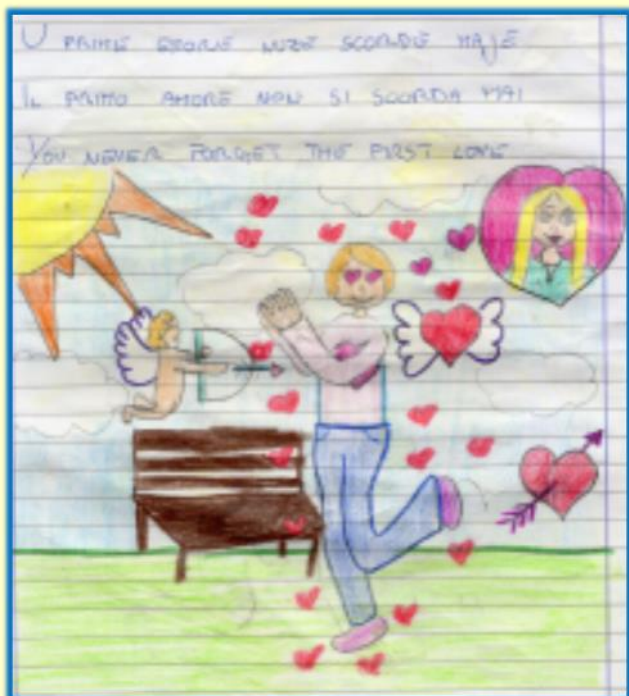 U PRIME GGORIE NUZE SCORDE MAJE
IL PRIMO AMORE NON SI SCORDA MAI
YOU NEVER FORGET THE FIRST LOVE